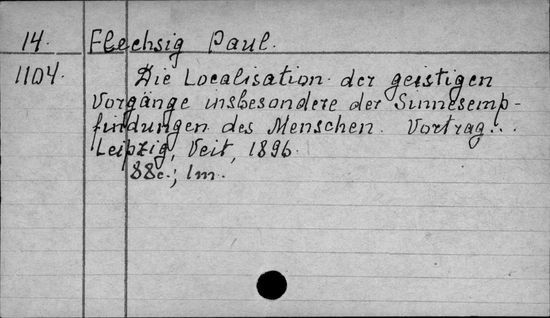 14. Flechsig Paul.
1104. Die Localisation der geistigen
Vorgänge insbesondere der Sinnesemp-
findungen des Menschen. Vortrag...
Leipzig, Veit, 1896.
88c.; 1m.